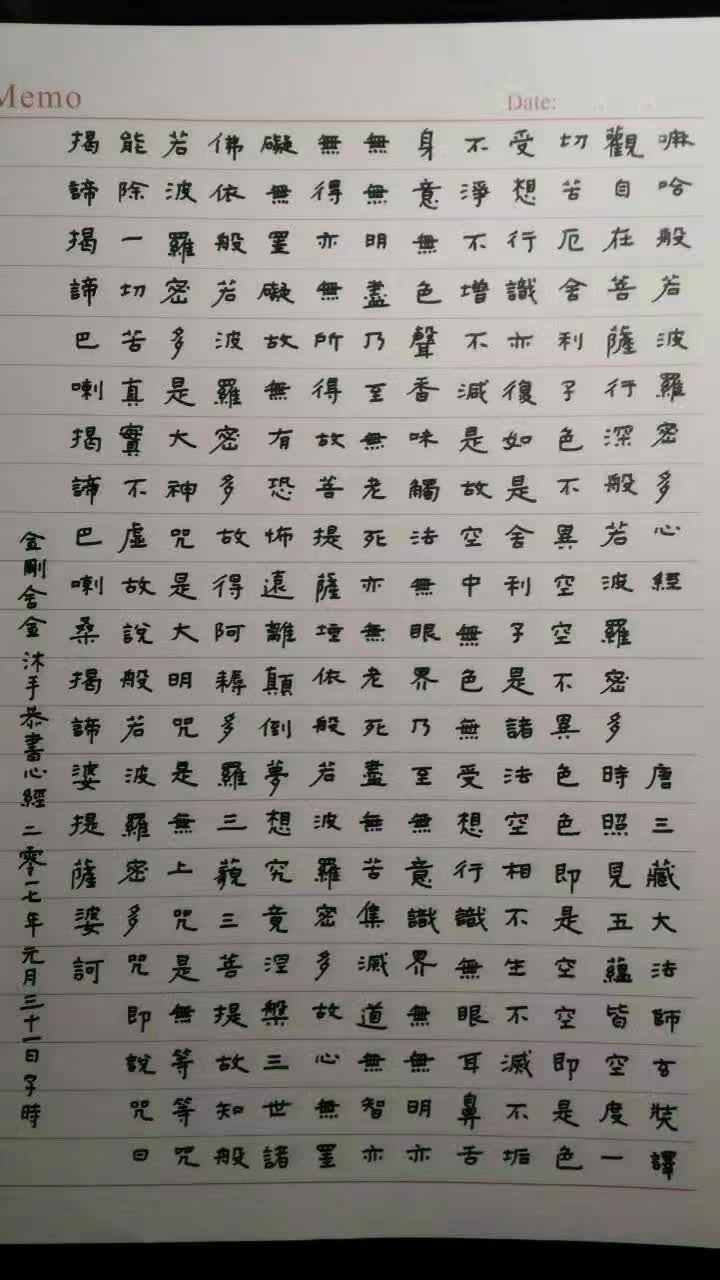 Memo
Date:
嘛哈般若波羅密多心經 唐三藏大法師玄奘譯
觀自在菩薩行深般若波羅密多時照見五蘊皆空度一
切苦厄舍利子色不異空空不異色色即是空空即是色
受想行識亦復如是舍利子是諸法空相不生不滅不垢
不淨不增不減是故空中無色無受想行識無眼耳鼻舌
身意無色聲香味觸法無眼界乃至無意識界無無明亦
無無明盡乃至無老死亦無老死盡無苦集滅道無智亦
無得亦無所得故菩提薩埵依般若波羅密多故心無罣
礙無罣礙故無有恐怖遠離顛倒夢想究竟涅槃三世諸
佛依般若波羅密多故得阿耨多羅三藐三菩提故知般
若波羅密多是大神咒是大明咒是無上咒是無等等咒
能除一切苦真實不虛故說般若波羅密多咒即說咒曰
揭諦揭諦巴喇揭諦巴喇桑揭諦婆提薩婆訶
金剛舍金 沐手恭書心經 二零一七年元月三十一日子時